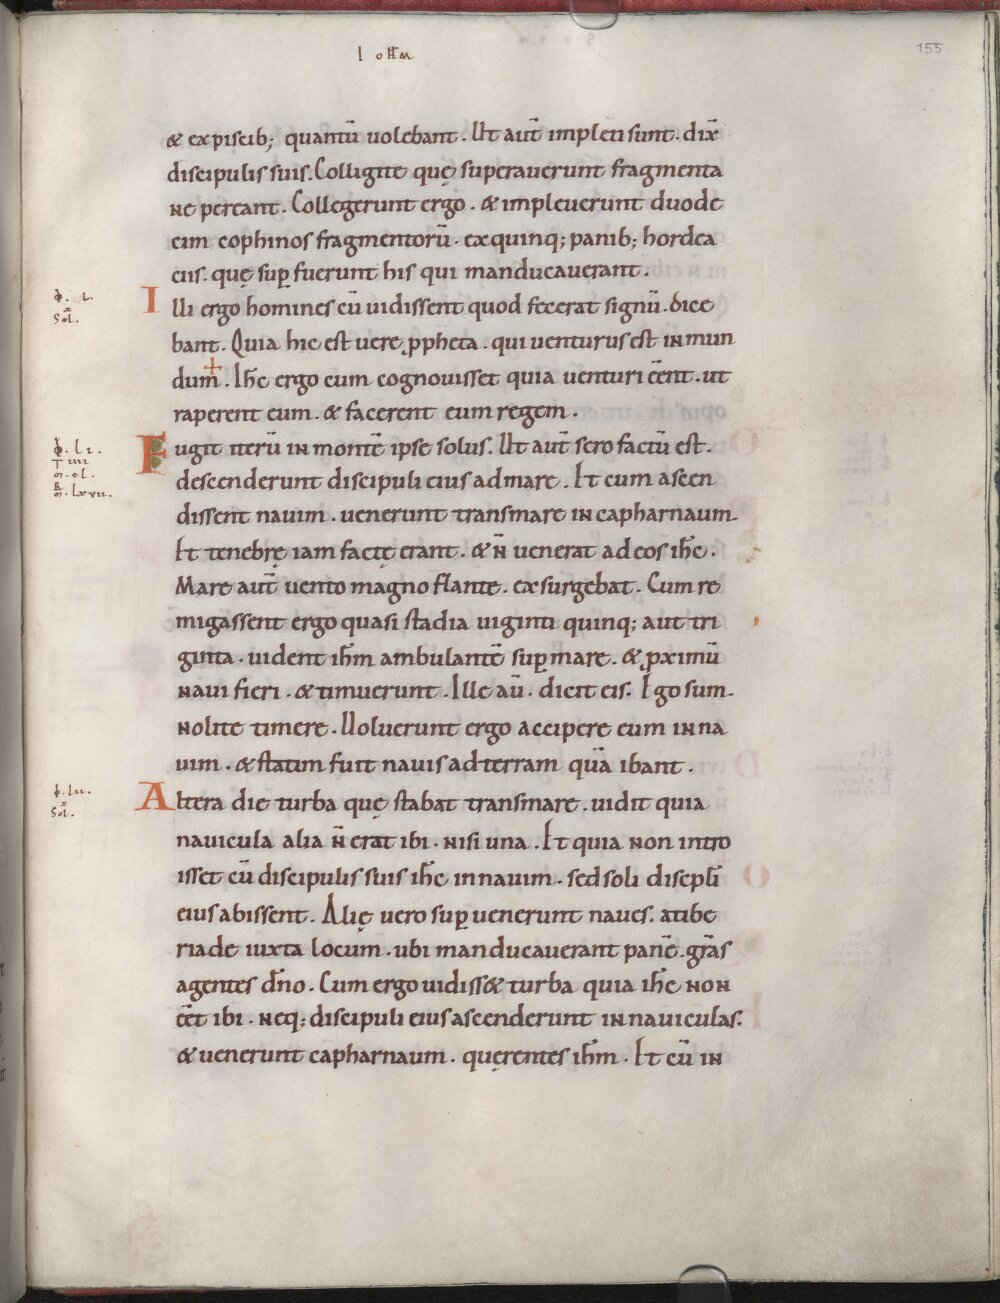 I oħm
155
& ex piscib; quantū volebant. Ut aut̄ impleti sunt. dix̄
discipulis suis. Colligite quę superaverunt fragmenta
ne pereant. Collegerunt ergo. & impleverunt duode
cim cophinos fragmentorū. ex quinq; panib; hordea
ciis. quę sup̄ fuerunt his qui manducaverant.
φ. l.
Sol̄.
Illi ergo homines cū vidissent quod fecerat signū. dice
bant. Quia hic est vere ꝓpheta. qui venturus est in mun
dum. Ih̄c ergo cum cognovisset quia venturi eēnt. ut
raperent eum. & facerent eum regem.
φ. li.
T iiii
m̄. cl.
R
m̄. lxvii.
Fugit iterū in montē ipse solus. Ut aut̄ sero factū est.
descenderunt discipuli eius ad mare. Et cum ascen
dissent navim. venerunt trans mare in capharnaum.
Et tenebrę iam factę erant. & n̄ venerat ad eos ih̄c.
Mare aut̄ vento magno flante. exsurgebat. Cum re
migassent ergo quasi stadia viginti quinq; aut tri
ginta. vident ih̄m ambulantē sup̄ mare. & ꝓximū
navi fieri. & timuerunt. Ille aū. dicit eis. Ego sum.
Nolite timere. Voluerunt ergo accipere eum in na
vim. & statim fuit navis ad terram quā ibant.
φ. lii.
Sol̄.
Altera die turba quę stabat trans mare. vidit quia
navicula alia n̄ erat ibi. nisi una. Et quia non intro
isset cū discipulis suis ih̄c in navim. sed soli discpli̅
eius abissent. Alię vero sup̄venerunt naves. a tibe
riade iuxta locum. ubi manducaverant panē. gr̄as
agentes dn̄o. Cum ergo vidiss& turba quia ih̄c non
eēt ibi. neq; discipuli eius ascenderunt in naviculas.
& venerunt capharnaum. quęrentes ih̄m. Et cū in